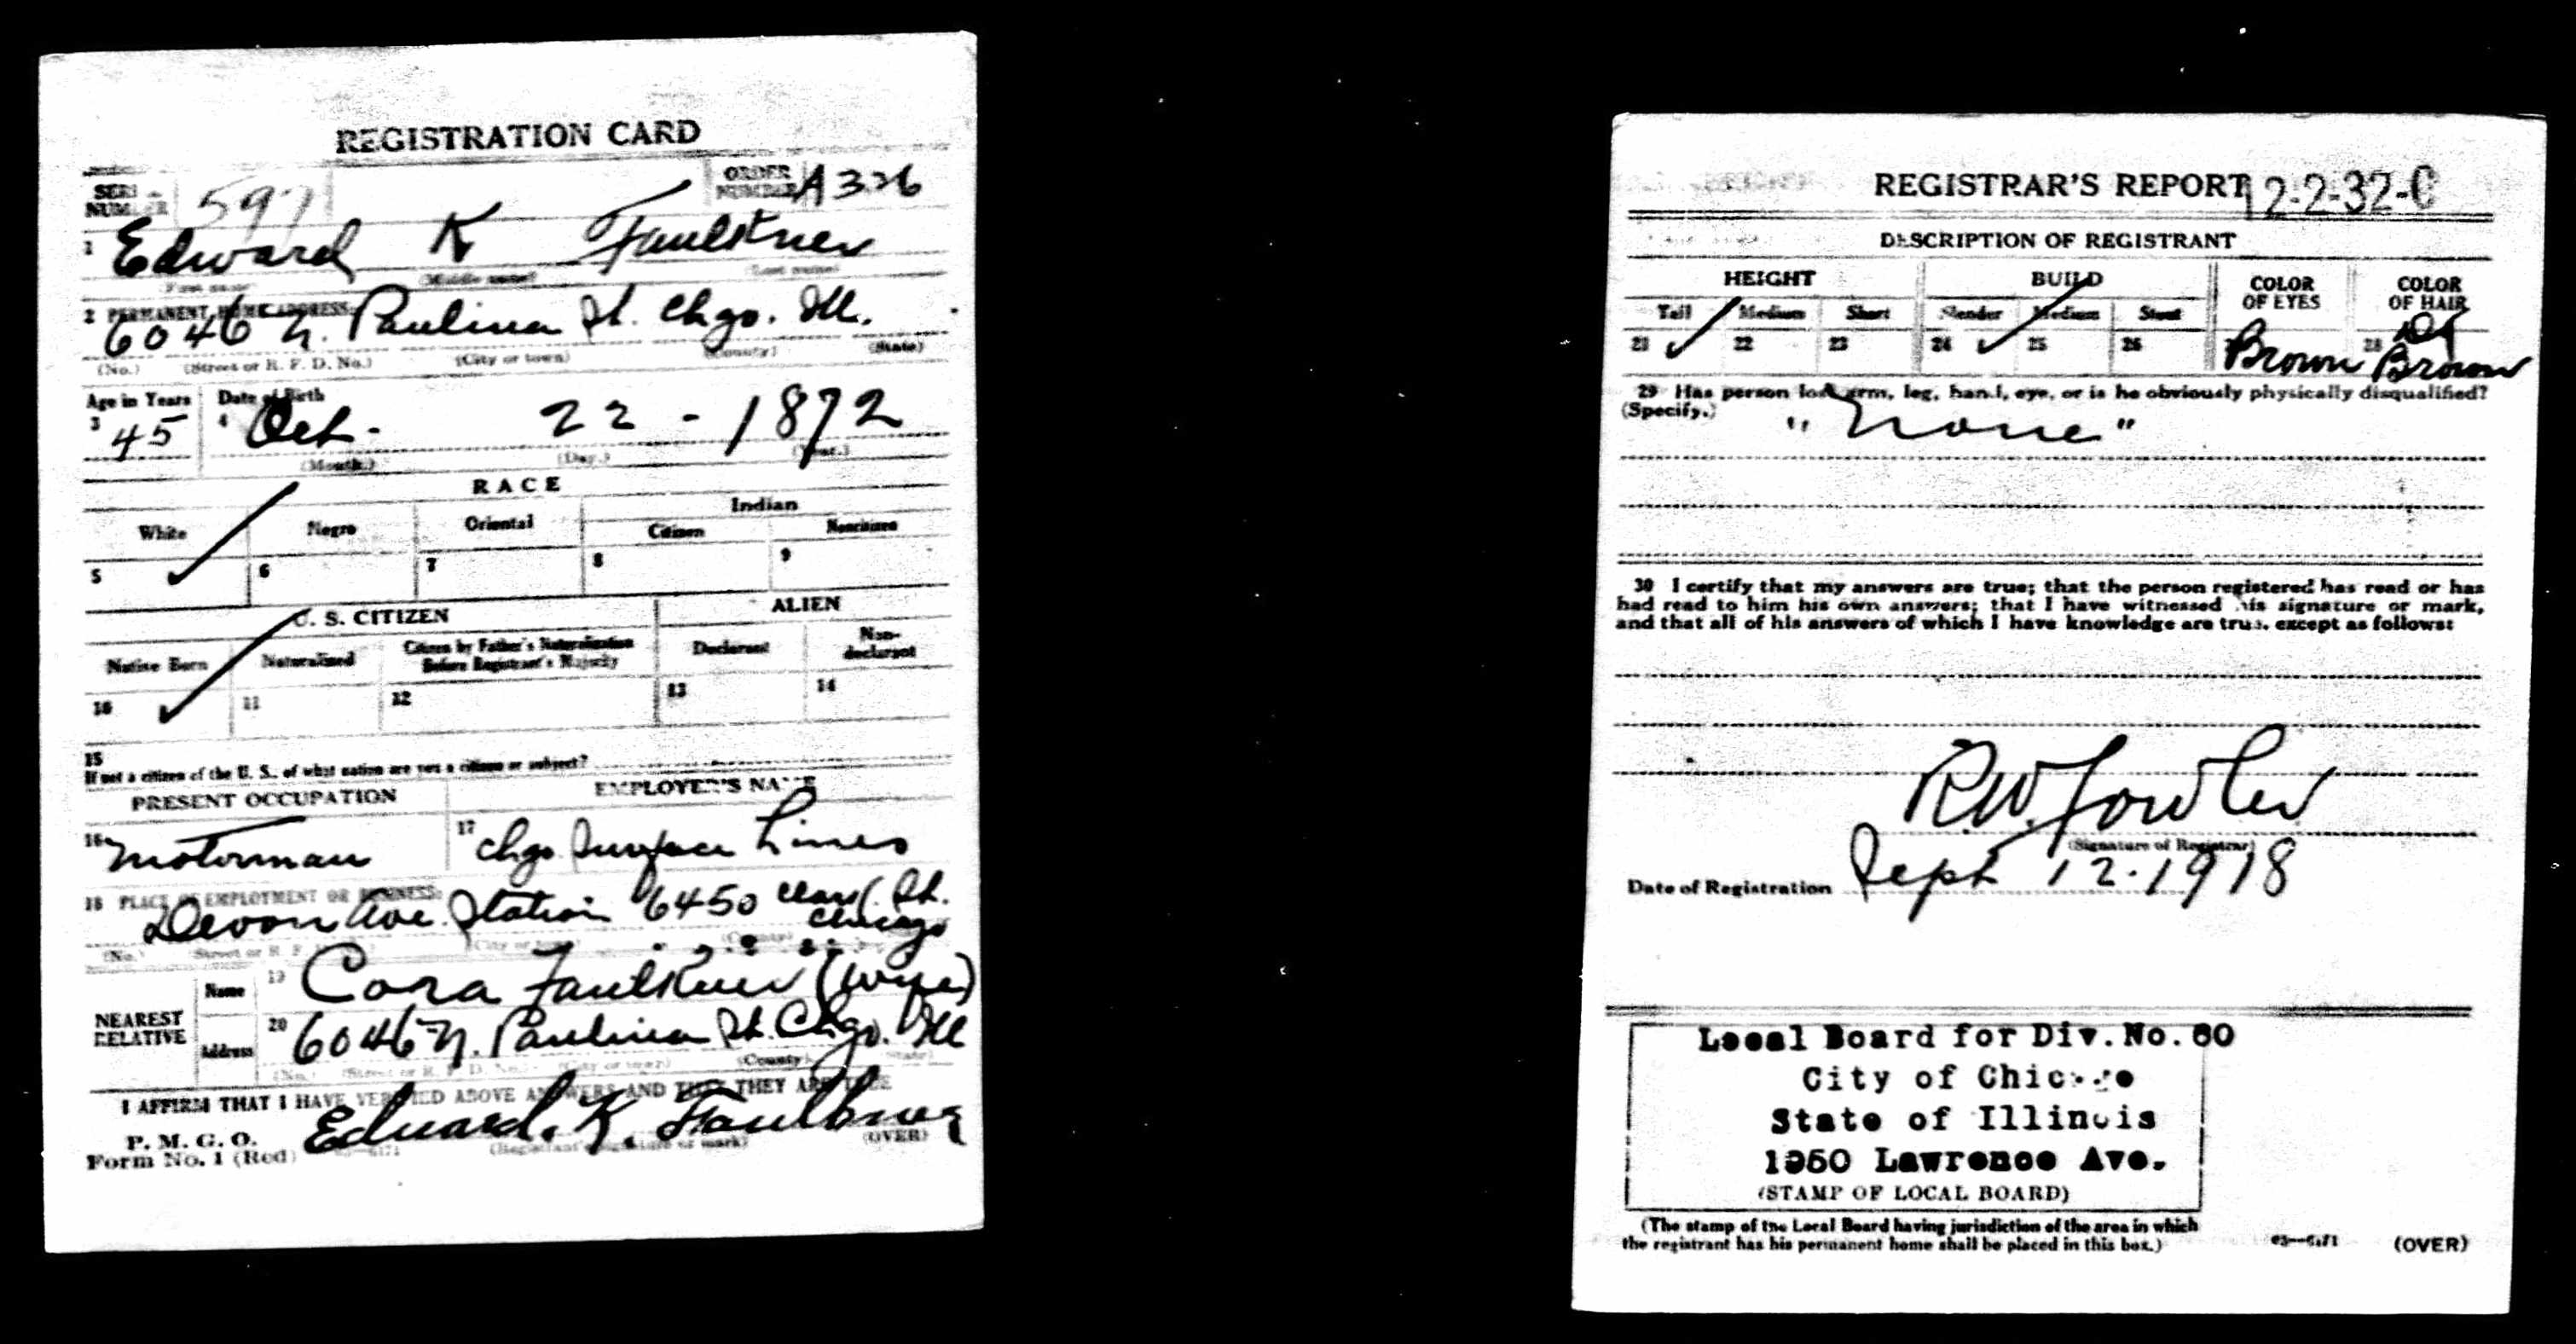 REGISTRATION CARD
SERIAL NUMBER 597 ORDER NUMBER A326
1 Edward K Faulkner
(First name) (Middle name) (Last name)
2 PERMANENT HOME ADDRESS:
6046 N. Paulina St. Chgo. Ill.
(No.) (Street or R. F. D. No.) (City or town) (County) (State)
Age in Years Date of Birth
3 45 4 Oct. 22 - 1872
(Month.) (Day.) (Year.)
RACE
White Negro Oriental Indian
Citizen Noncitizen
5 ✓ 6 7 8 9
U. S. CITIZEN ALIEN
Native Born Naturalized Citizen by Father's Naturalization Before Registrant's Majority Declarant Non-declarant
10 ✓ 11 12 13 14
15
If not a citizen of the U. S., of what nation are you a citizen or subject?
PRESENT OCCUPATION EMPLOYER'S NAME
16 Motorman 17 Chgo Surface Lines
18 PLACE OF EMPLOYMENT OR BUSINESS:
Devon Ave. Station 6450 Clark St. Chicago
(No.) (Street or R. F. D. No.) (City or town) (County)
NEAREST RELATIVE
Name 19 Cora Faulkner (Wife)
Address 20 6046 N. Paulina St. Chgo. Ill
(No.) (Street or R. F. D. No.) (City or town) (County) (State)
I AFFIRM THAT I HAVE VERIFIED ABOVE ANSWERS AND THAT THEY ARE TRUE
P. M. G. O.
Form No. 1 (Red) Edward. K. Faulkner
(Registrant's signature or mark) (OVER)
REGISTRAR'S REPORT 12-2-32-C
DESCRIPTION OF REGISTRANT
HEIGHT BUILD COLOR OF EYES COLOR OF HAIR
Tall Medium Short Slender Medium Stout
21 ✓ 22 23 24 ✓ 25 26 Brown 28 Dk Brown
29 Has person lost arm, leg, hand, eye, or is he obviously physically disqualified?
(Specify.) "None"
30 I certify that my answers are true; that the person registered has read or has
had read to him his own answers; that I have witnessed his signature or mark,
and that all of his answers of which I have knowledge are true, except as follows:
R.W. Fowler
(Signature of Registrar)
Date of Registration Sept 12. 1918
Local Board for Div. No. 60
City of Chicago
State of Illinois
1950 Lawrence Ave.
(STAMP OF LOCAL BOARD)
(The stamp of the Local Board having jurisdiction of the area in which
the registrant has his permanent home shall be placed in this box.)
03—6171 (OVER)